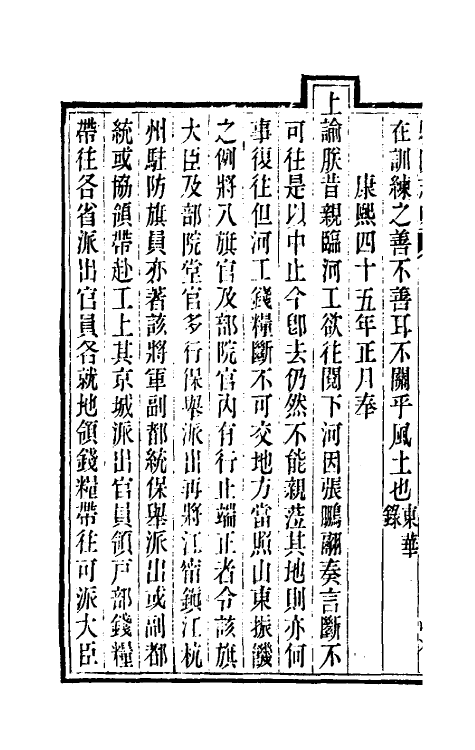 在訓練之善不善耳不關乎風土也東華錄
康熙四十五年正月奉
上諭朕昔親臨河工欲往閱下河因張鵬翮奏言斷不
可往是以中止今卽去仍然不能親蒞其地則亦何
事復往但河工錢糧斷不可交地方當照山東振饑
之例將八旗官及部院官內有行止端正者令該旗
大臣及部院堂官多行保舉派出再將江甯鎮江杭
州駐防旗員亦著該將軍副都統保舉派出或副都
統或協領帶赴工上其京城派出官員領戸部錢糧
帶往各省派出官員各就地領錢糧帶往可派大臣